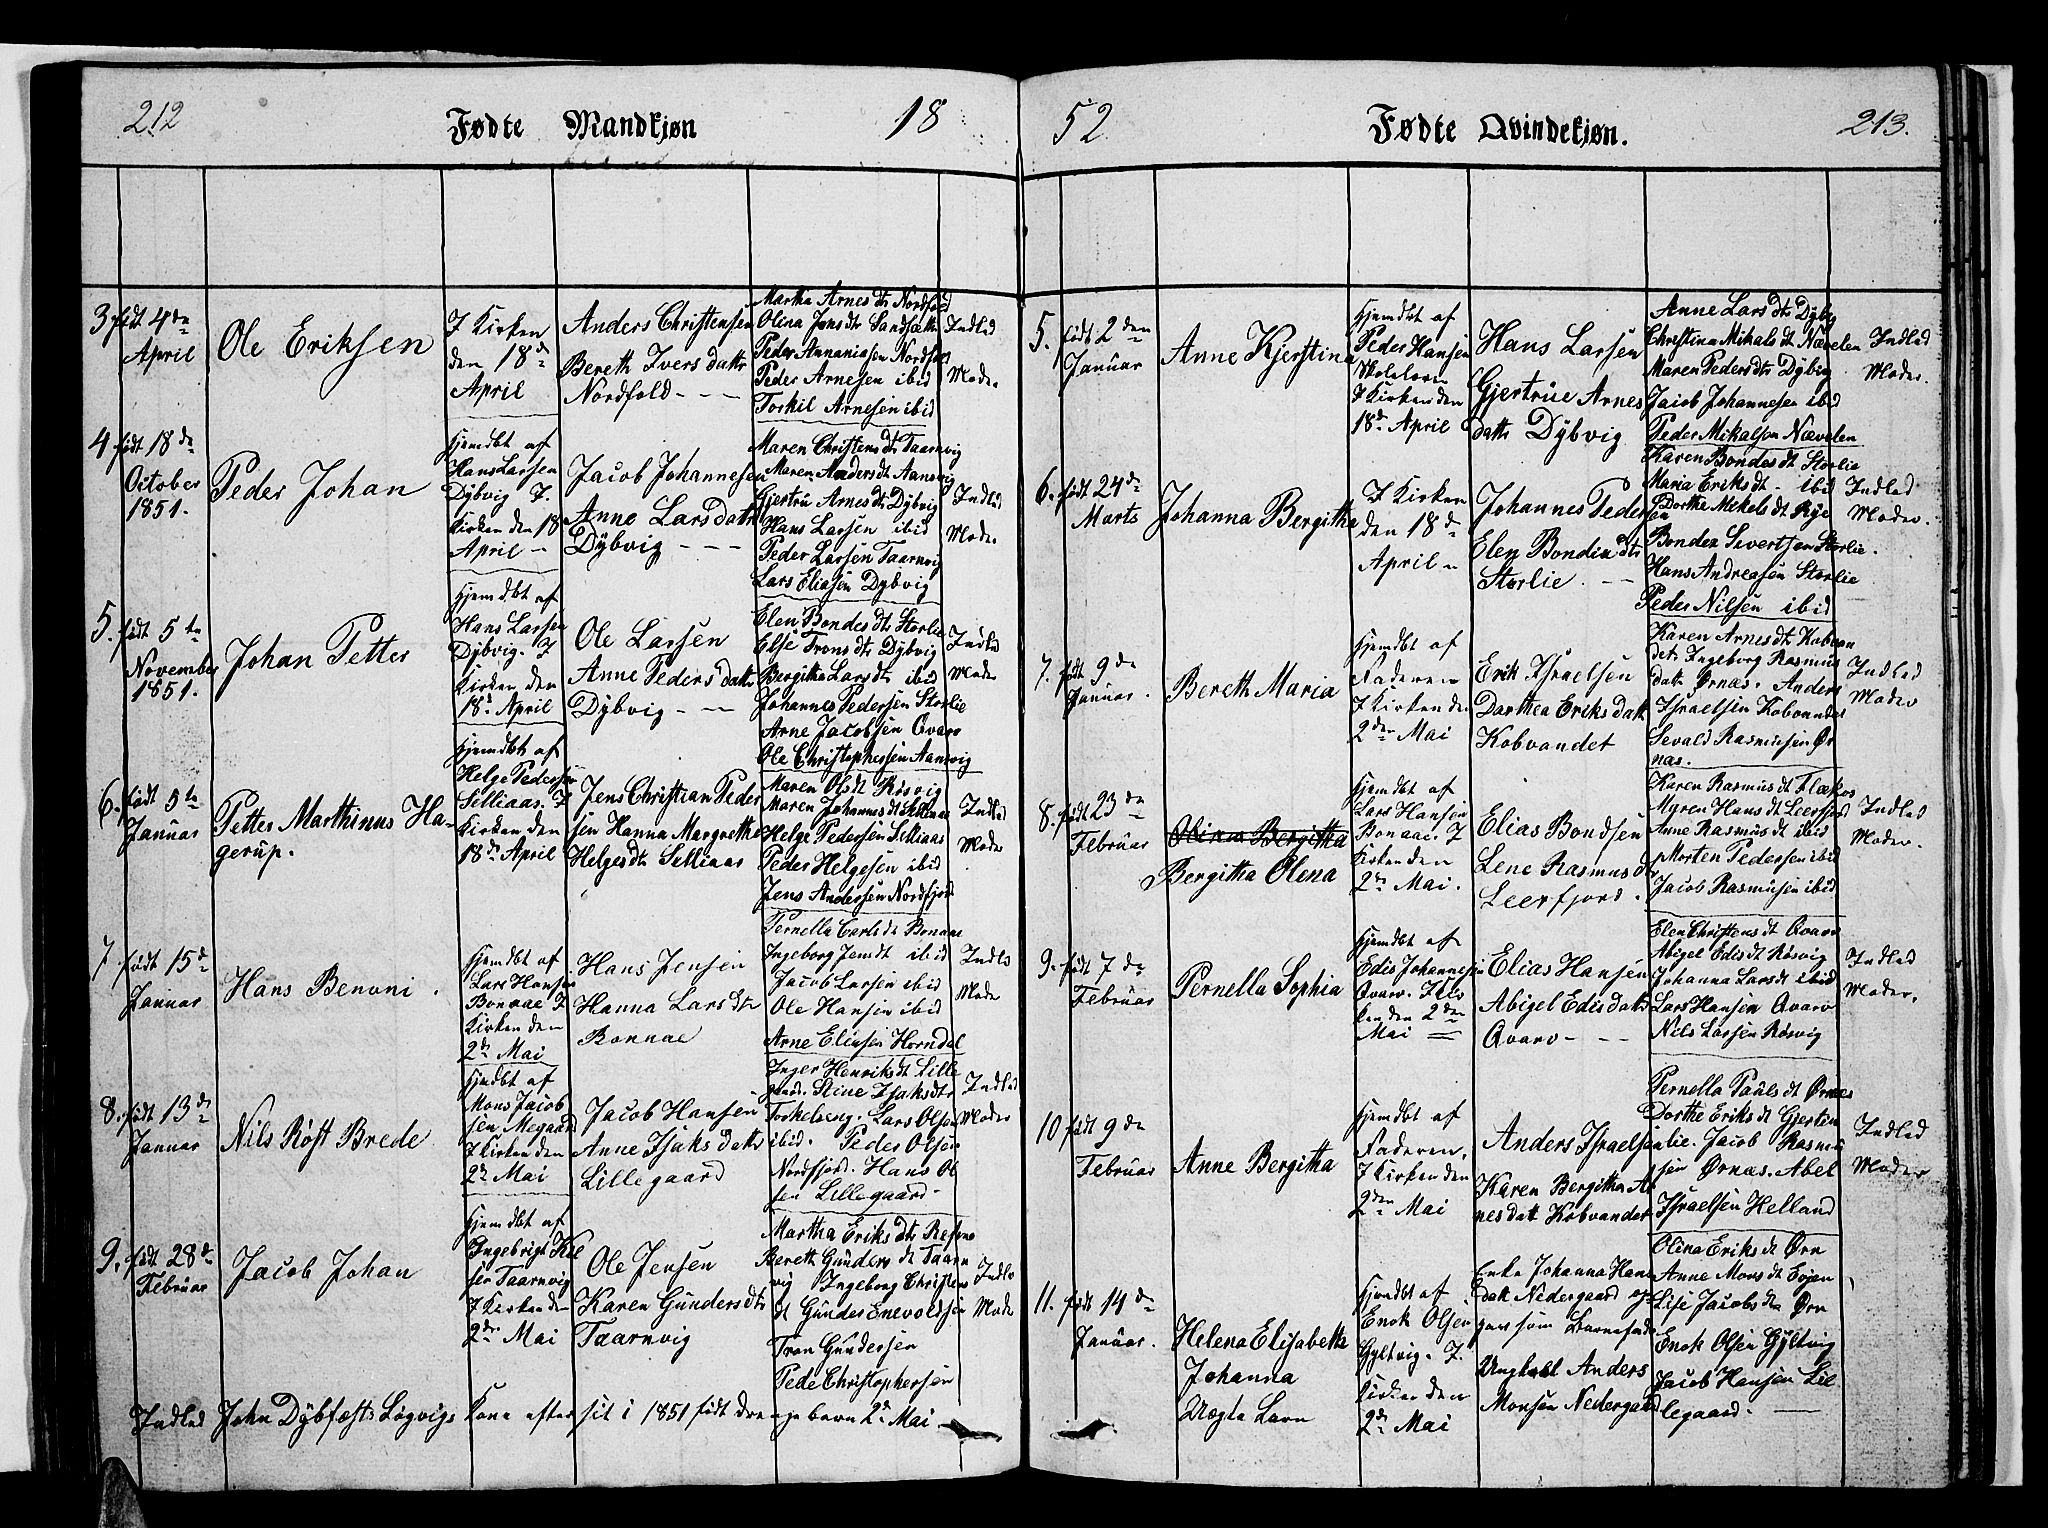 212
Fødte Mandkjøn
18
3. født 4de
April
Ole Eriksen
I Kirken
den 18de
April
Anders Christensen
Bereth Ivers datr
Nordfold - - -
Martha Arnesdtr Nordfold
Olena Jonsdtr Sandsætte
Peder Annaniasen Nordfold
Peder Arnesen ibid
Torkil Arnesen ibid
Indled
Moder
4 født 18de
October
1851.
Peder Johan
hjemdbt af
Hans Larsen
Dybvig I.
Kirken den 18
April -
Jacob Johannesen
Anne Lars datr
Dÿbvig - - -
Maren Christens dtr Taarnvig
Maren Anders dt Aansvig
Gjertru Arnes dtr Dÿbvig
Hans Larsen ibid
Peder Larsen Taarnvig
Lars Eliasen Dybvig
Indled
Moder
5. født 5te
November
1851.
Johan Petter
hjemdbt af
Hans Larsen
Dÿbvig. I
Kirken den
18de April
Ole Larsen
Anne Peders datr
Dÿbvig - --
Elen Bondes dtr Storlie
Else Trons dtr Dÿbvig
Bergitha Lars dtr ibid
Johannes Pedersen Storlie
Arne Jacobsen Qvarv
Ole Christophersen Aansvig
Indled
Moder
6. født 5te
Januar
Petter Marthinus Ha-
gerup.
hjemdbt af
Helge Pedersen
Selliaas. I
Kirken den
18de April
Jens Christian Peder
sen Hanna Margretha
Helges dtr Selliaas
Maren Ols dt Røsvig
Maren Johannes dt Selliaas
Helge Pedersen Selliaas
Peder Helgesen ibid
Jens Andersen Nordfjord
Indled
Moder
7 født 15de
Januar
Hans Benoni.
hjemdbt af
Lars Hansen
Bonaae I
Kirken den
2de Mai
Hans Jensen
Hanna Lars dtr
Bonnae
Pernella Carls dt Bonaae
Ingeborg Jens dt ibid
Jacob Larsen ibid
Ole Hansen ibid
Arne Eliasen Horndal
Indled
Moder
8. født 13de
Januar
Nils Røst Brede
hjmdbt af
Mons Jacob
sen Megaard
I Kirken den
2de Mai
Jacob Hansen
Anne Isaks datr
Lillegaard
Inger Henriks dt Lille
gaard. Stine Isaks dtr
Torkeleng. Lars Olsen
ibid. Peder Olsen
Nordfjord. Hans Ol
sen Lillegaard -
Indled
Moder
9. født 28de
Februar
Jacob Johan
hjemdbt af
Ingebrigt Kiel
sen Taarnvig
I Kirken den
2de Mai
Ole Jensen
Karen Gunders dtr
Taarnvig
Martha Eriks dtr
Bereth Gunders dt Taarn
vig Ingeborg Christens
dt Gunder Enevoldsen
Tron Gundersen
Peder Christophersen
Indled
Moder
Indled John Dÿbfæst Løgvigs Kone efter sit i 1851 født drenge barn 2de Mai
52
Fødte Qvindekjøn.
213.
5. født 2den
Januar
Anne Kjerstina
hjemdbt af
Peder Hansen
Skolelærer
I Kirken den
18de April
Hans Larsen
Gjertrue Arnes
datr Dÿbvig
Anne Lars dtr Dÿbvig
Christina Mikals dt Nævelen
Maren Peders dtr Dÿbvig
Jacob Johannesen ibid
Peder Mikalsen Nævelen
Indled
Moder.
6. født 24de
Marts
Johanna Bergitha
I Kirken
den 18de
April
Johannes Peder
sen
Elen Bondes dtr
Storlie. - -
Karen Bondes dt Storlie
Maria Eriks dt - ibid
Dorthe Mekels dt Rye
Bonde Sivertsen Storlie.
Hans Andreasen Storlie
Peder Nilsen ibid
Indled
Moder.
7. født 9de
Januar.
Bereth Maria
hjemdbt af
Faderen
I Kirken den
2den Mai
Erik Israelsen
Darthea Eriks datr
Kobvandet
Karen Arnes dtr Kobvan
det. Ingeborg Rasmus
datr Ørnæs. Anders
Israelsen Kobvandet
Sevald Rasmusen Ør
næs.
Indled
Moder
8. født 23de
Februar
Olina Bergitha
Bergitha Olena
hjemdbt af
Lars Hansen
Bonaae. I
Kirken den
2de Mai.
Elias Bondsen
Lene Rasmus dtr
Leerfjord.
Karen Rasmus dt Flækos
Maren Hans dt Leerfjord
Anne Rasmus dt ibid
Morten Pedersen ibid
Jacob Rasmusen ibid
Indled
Moder.
9. født 7de
Februar
Pernella Sophia
hjemdbt af
Edis Johannesen
Qvarv. I Kir
ken den 2den
Mai =
Elias Hansen
Abigel Edis datr
Qvarv - - -
Elen Christens dt Qvarv
Abigel Edis dt Røsvig
Johanna Lars dt ibid
Lars Hansen Qvarv
Nils Larsen Røsvig
Indled
Moder.
10 født 9de
Februar
Anne Bergitha
hjemdbt af
Faderen,
I Kirken den
2den Mai
Anders Israelsen
Karen Bergitha Ar
nes datr Kobvandet
Pernella Pauls dt Ørnæs
Dorthe Eriks dt Gjerten
lie. Jacob Rasmu
sen Ørnæs. Abel
Israelsen Helland
Indled
Moder
11. født 14de
Januar.
Helena Elisabeth
Johanna
Uægta Barn
hjemdbt af
Enok Olsen
Gyltvig. I.
Kirken den
2de Mai
Enke Johanna Hans
datr Nedergaard op-
gav som Barnefader
Ungkarl Anders
Monsen Nedergaard
Olina Eriks dt Ørn
Anne Mons dt Evjen
Lise Jacobs dtr Ørn
Enok Olsen Gÿltvig
Jacob Hansen Lil
legaard. —